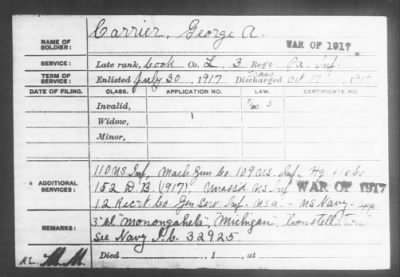 NAME OF SOLDIER: Carrier, George A.
WAR OF 1917
SERVICE: Late rank, Cook Co. L, 3 Reg't Pa. Inf.
TERM OF SERVICE: Enlisted July 30, 1917 Discharged Oct
DATE OF FILING. CLASS. APPLICATION NO. LAW. CERTIFICATE NO.
Invalid,
Widow,
Minor,
ADDITIONAL SERVICES:
110 US Inf, Mach Gun Co. 109 US Inf. Hq
152 D.B. (1917), US Inf WAR OF 1917
12 Recrt Co. Gen Serv Inf. USA. - US Navy - app
REMARKS: "Monongahela", "Michigan", "Constellation"
See Navy I.C. 32925
Died , 1 , at